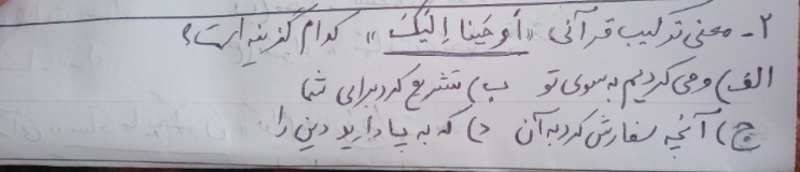 ۲- معنی ترکیب قرآنی «أوحَینا اِلَیکَ» کدام گزینه است؟
الف) وحی کردیم به سوی تو ب) تشریع کرد برای شما
ج) آنچه سفارش کرد به آن د) که به پا دارید دین را